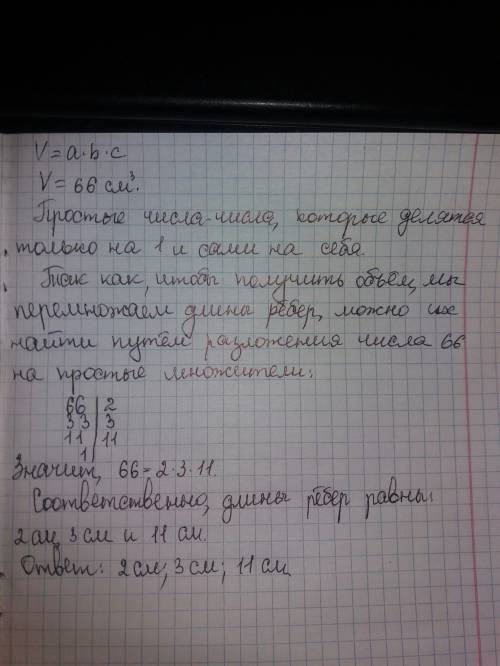 V = a·b·c
V = 66 см³.
Простые числа-числа, которые делятся
только на 1 и сами на себя.
Так как, чтобы получить объём, мы
перемножаем длина рёбер, можно их
найти путём разложения числа 66
на простые множители:
66 | 2
33 | 3
11 | 11
1 |
Значит, 66 = 2·3·11.
Соответственно, длины рёбер равны:
2 см, 3 см и 11 см.
Ответ: 2 см; 3 см; 11 см.